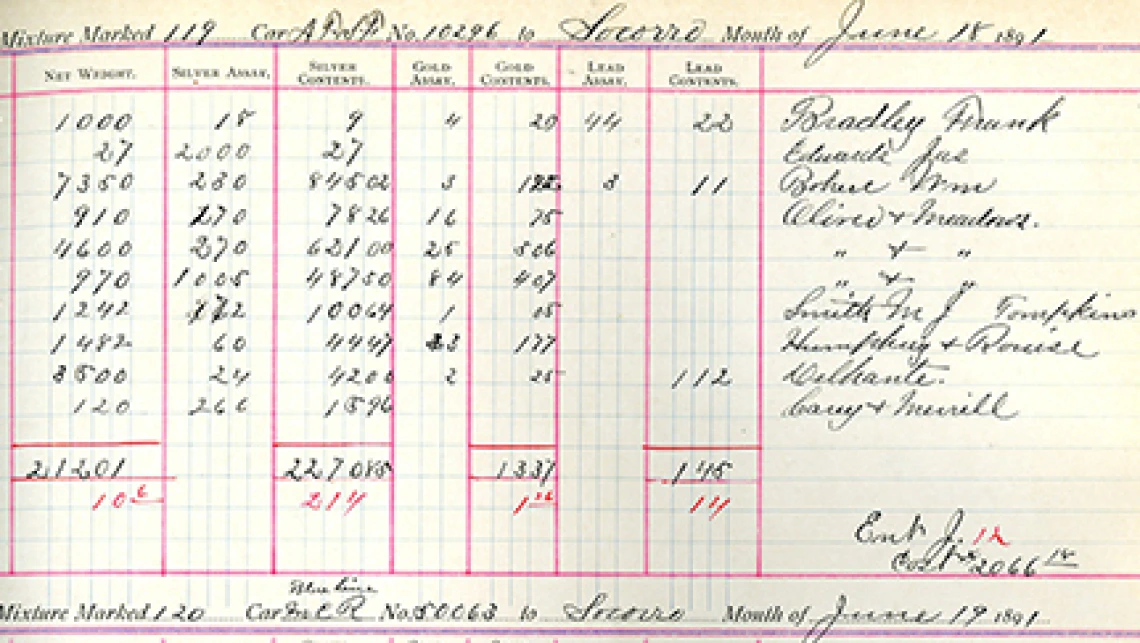 Mixture Marked 119 Car A T & S F No. 10296 to Socorro Month of June 18 1891
NET WEIGHT. SILVER ASSAY. SILVER CONTENTS. GOLD ASSAY. GOLD CONTENTS. LEAD ASSAY. LEAD CONTENTS.
1000 18 9 4 20 44 22 Bradley Frank
27 2000 27 Edwards Jas
7350 230 84502 3 3 11 Wm
910 170 7826 16 75 Oliver & Meadows.
4600 270 62100 25 506 " & "
970 1005 48750 84 407 " & "
1242 172 10064 1 15 Smith M J Tompkins
1482 60 4447 23 177 Humphrey &
3500 24 4200 2 25 112
120 266 1596 Carey & Merrill
21201 227085 1337 145
10 6 214 1 26 14
Ent J. 12
Cost 2066 18
Blue line
Mixture Marked 120 Car No. 50063 to Socorro Month of June 19 1891